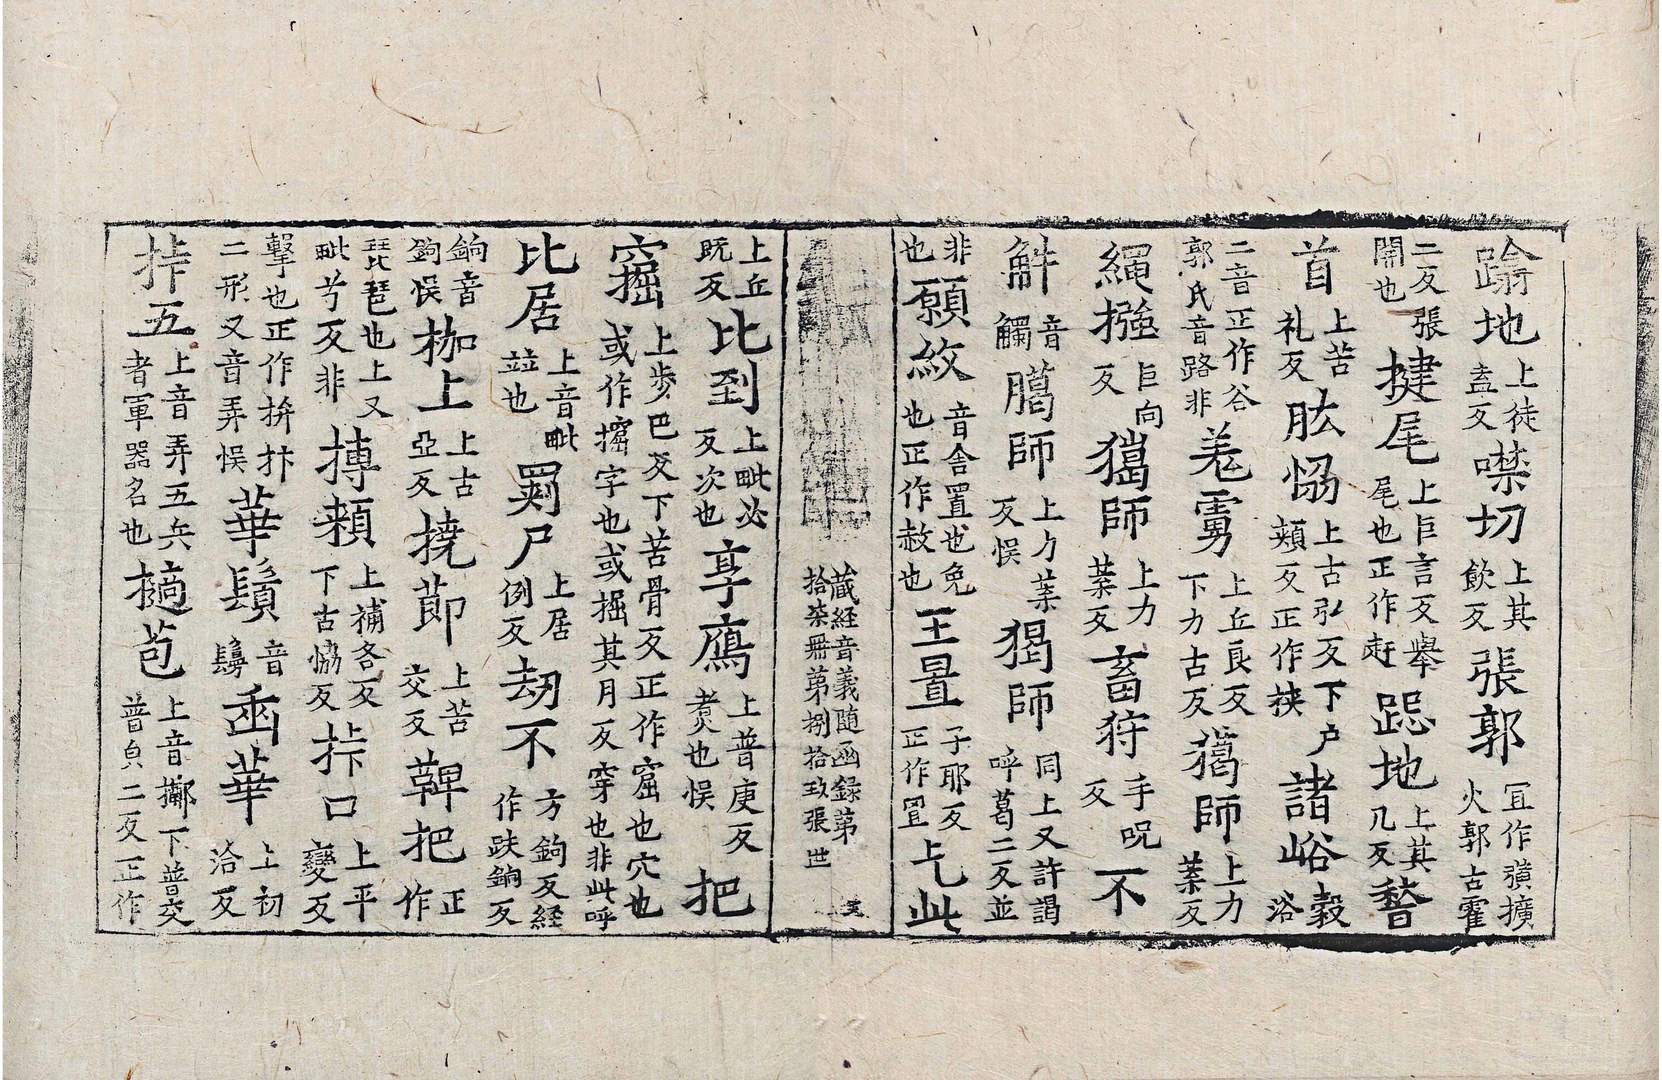 踰地上徒盍反噤切上其飲反張郭冝作彍擴火郭古霍
二反張開也揵尾上巨言反舉尾也正作赶跽地上其几反瞀
首上苦礼反肱恊上古弘反下户頰反正作挾諸峪穀浴
二音正作谷郭氏音路非羗虜上丘良反下力古反獦師上力葉反
繩摾巨向反獵師上力葉反畜狩手呪反不
觧音觸臈師上力葉反悮猲師同上又許謁呼葛二反並
非也願紋音舍置也免也正作赦也王罝子耶反正作罝上此
藏経音義随函録第拾柒册第捌拾玖張 世
上丘既反比到上毗必反次也享鴈上普庚反煑也悮把
窟上步巴反下苦骨反正作窟窟也穴也或作㨛字也或掘其月反穿也非此呼
比居上音毗竝也罽尸上居例反刼不方鉤反経作趺鉤反
鉤音鉤悮枷上上古亞反撓節上苦交反鞞把正作
琵琶也上又毗兮反非摶頰上補各反下古恊反挊口上平變反
擊也正作拚抃二形又音弄悮華鬚音鬚函華上初洽反
挊五上音弄五兵者軍器名也擿苞上音擲下普交普皃二反正作